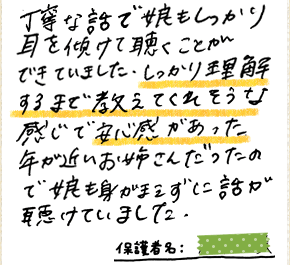 丁寧な話で娘もしっかり
耳を傾けて聴くことが
できていました。しっかり理解
するまで教えてくれそうな
感じで安心感があった
年が近いお姉さんだったの
で娘も身がまえずに話が
聴けていました。
保護者名: